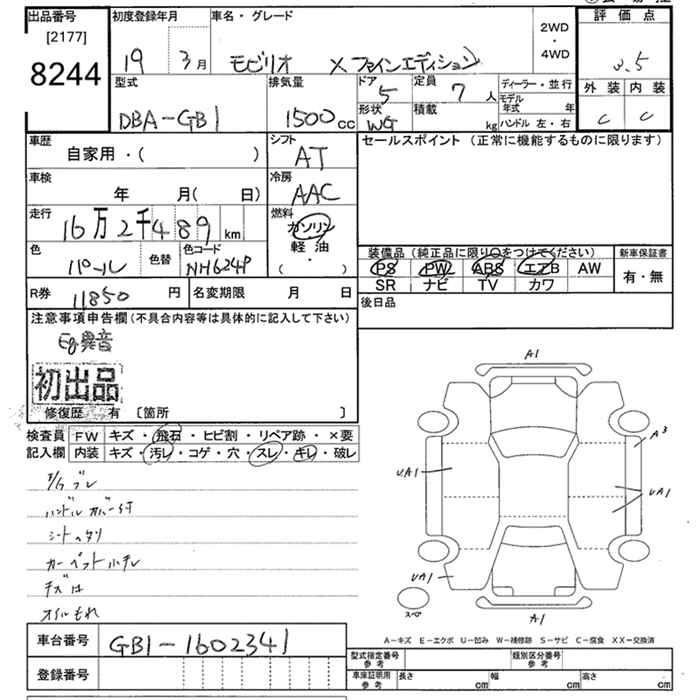 出品番号
[2177]
8244
初度登録年月
19 3月
車名・グレード
モビリオ Xファインエディション
2WD
・
4WD
評価点
3.5
外装 内装
C C
型式
DBA-GB1
排気量
1500cc
ドア
5
形状
WG
定員
7人
積載
kg
ディーラー・並行
モデル年式 年
ハンドル 左・右
車歴
自家用・( )
シフト
AT
セールスポイント (正常に機能するものに限ります)
車検
年 月( 日)
冷房
AAC
走行
16万2千489km
燃料
ガソリン
軽油
( ・ )
色
パール
色替
色コード
NH624P
装備品(純正品に限り〇をつけてください)
PS PW ABS エアB AW
SR ナビ TV カワ
新車保証書
有・無
R券
11850円
名変期限 月 日
後日品
注意事項申告欄(不具合内容等は具体的に記入して下さい)
Eg異音
初出品
修復歴 有 〔箇所 〕
検査員記入欄
FW キズ・飛石・ヒビ割・リペア跡・×要
内装 キズ・汚レ・コゲ・穴・スレ・キレ・破レ
ハンドルカバー付
シートヘタリ
オイルもれ
A1
A3
UA1
UA1
UA1
A1
スペア
A-キズ E-エクボ U-凹み W-補修跡 S-サビ C-腐食 XX-交換済
車台番号
GB1-1602341
登録番号
型式指定番号
参考
類別区分番号
参考
車庫証明用
参考
長さ cm 幅 cm 高さ cm